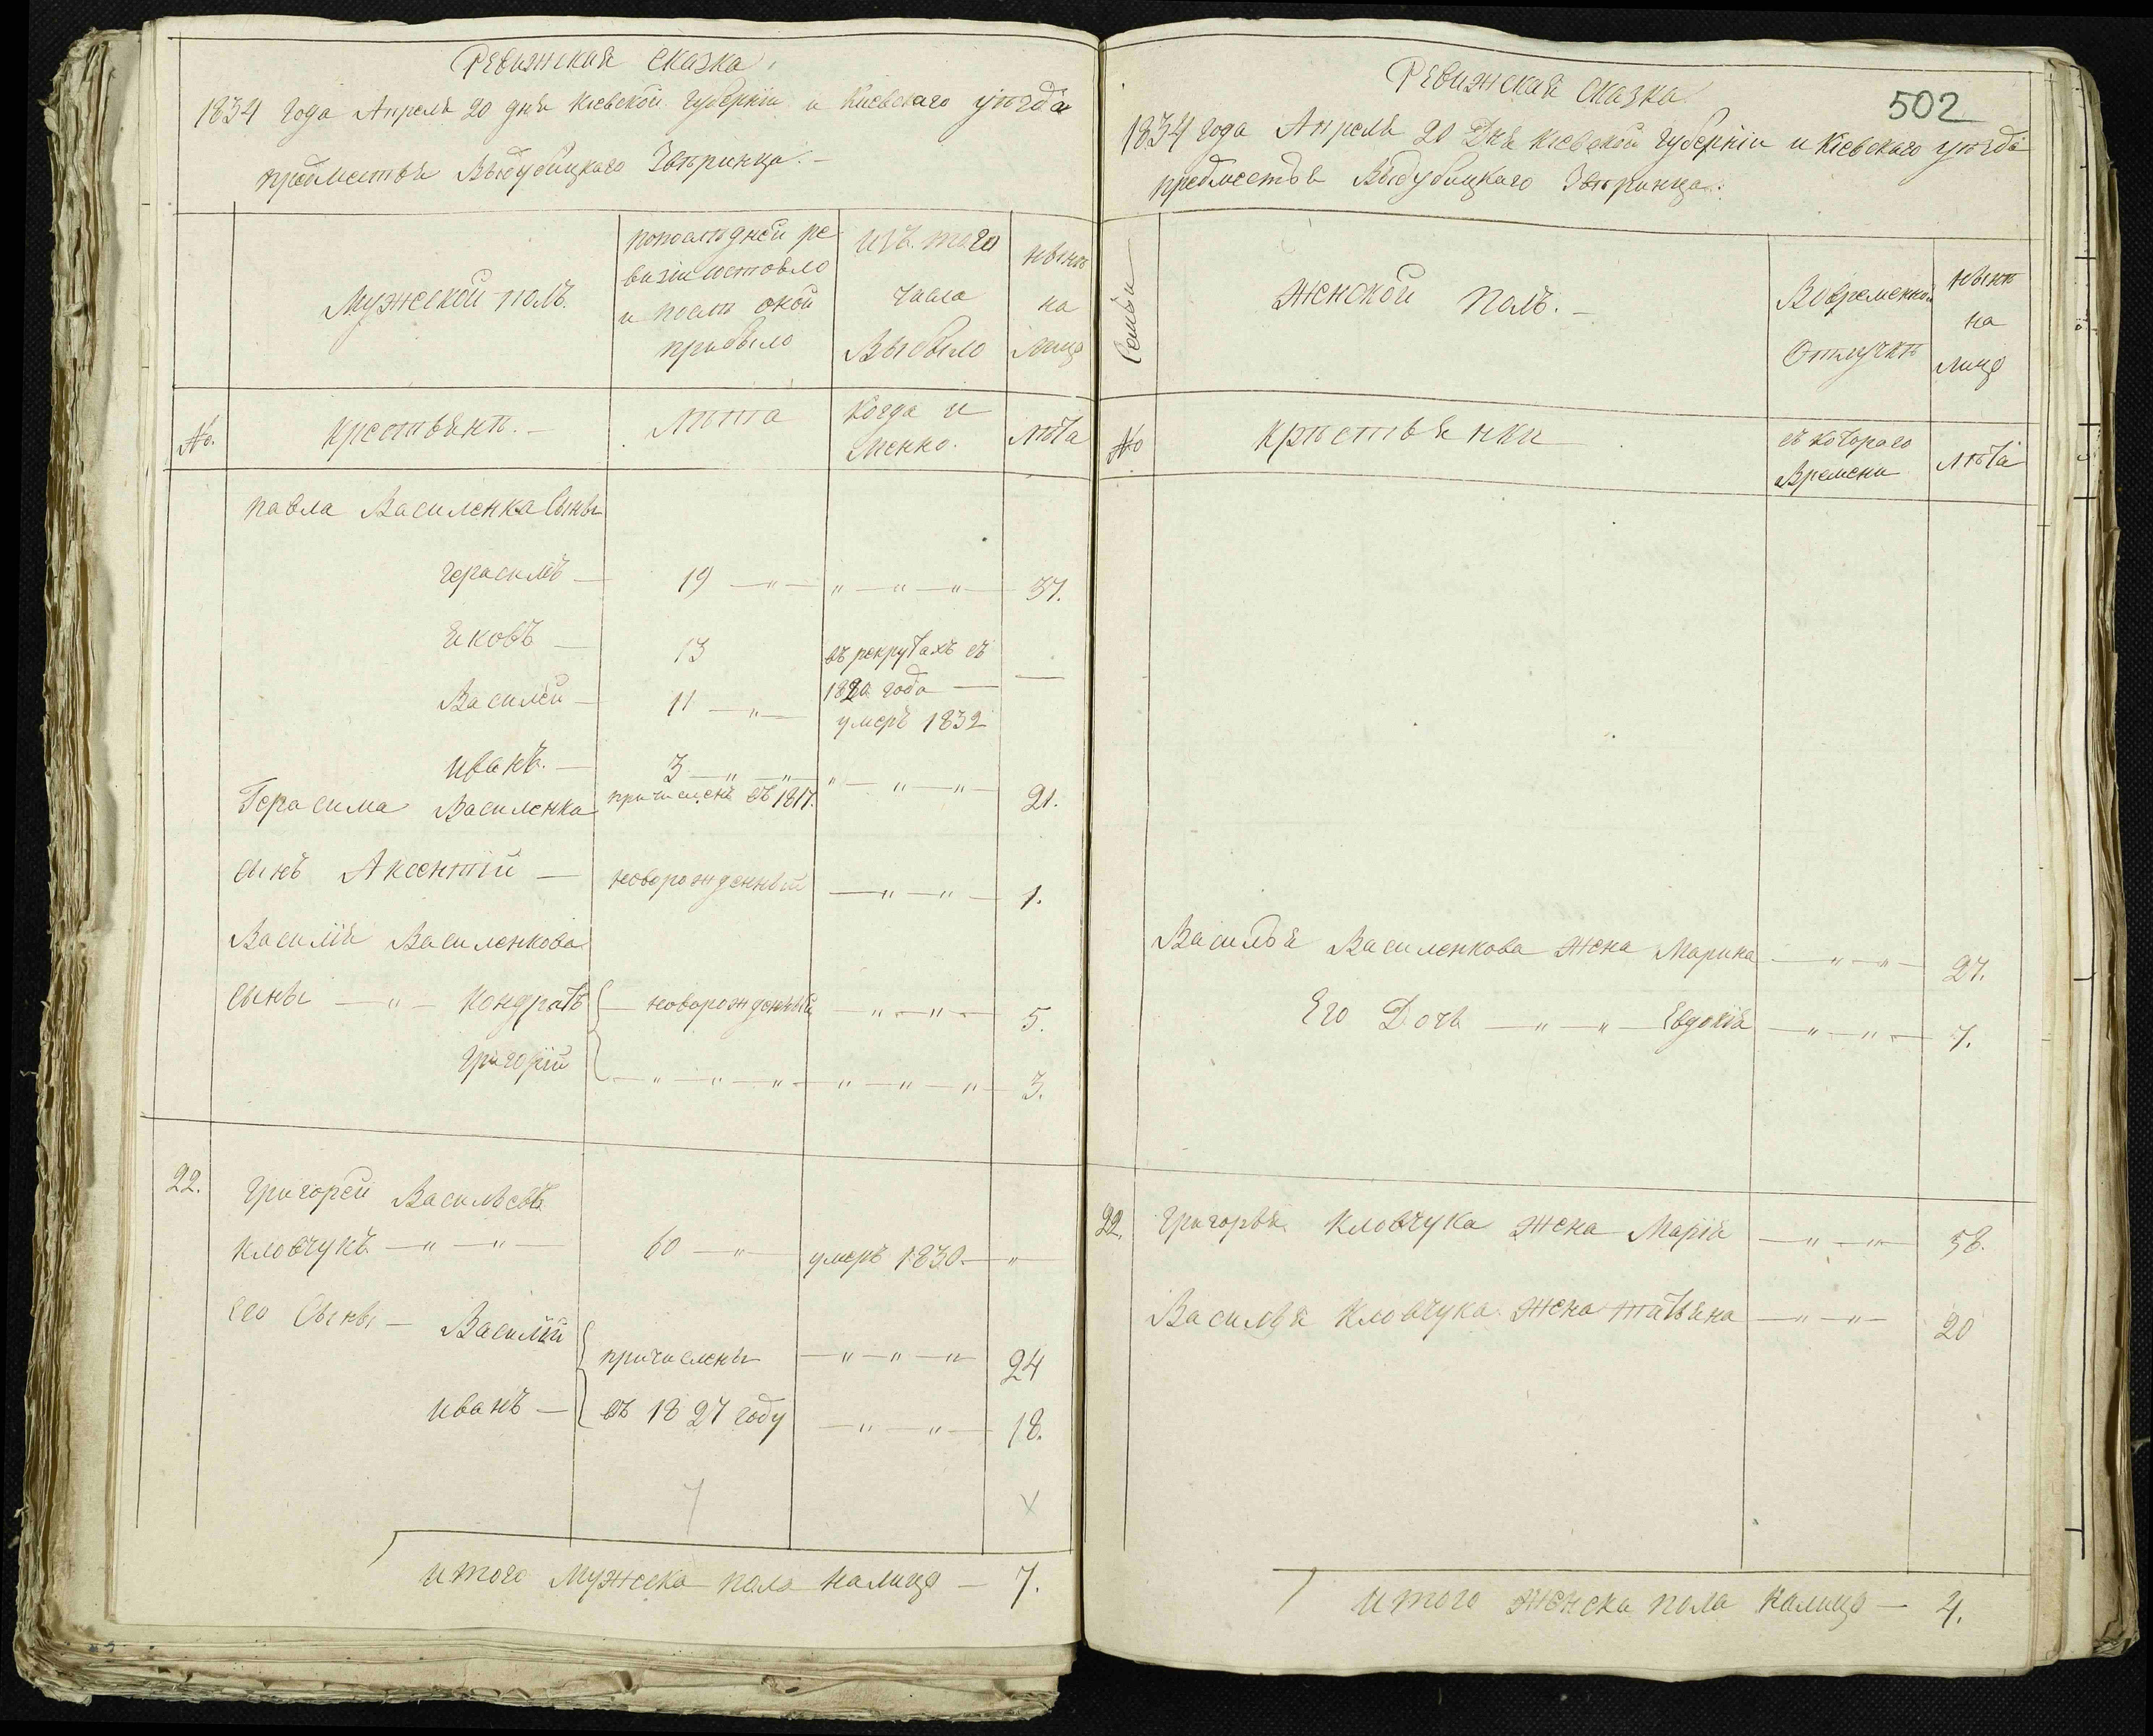 Ревижская сказка,
1834 года Апреля 20 дня Киевской Губернiи и Киевскаго уѣзда
предместья Выдубицкаго Звѣринца. —
Мужеской полъ.
попоследней ре
визiи состояло
и послѣ оной
прибыло
изъ того
числа
Выбыло
нынѣ
на
лицо
№.
крестьянѣ. —
лѣта
Когда и
Именно.
лѣта
павла Василенка Сыны
герасимъ — 19 — " — " — " — " — 37.
Яковъ — 13 въ рекрутахъ съ
1820 года — —
Василей — 11 — " — умеръ 1832
иванъ. — 3 — " — " — " — " — " — 21.
Герасима Василенка причисленъ въ 1817.
сынъ Аксентiй — новорожденный — " — " — 1.
Василiя Василенкова
сыны — " — Кондратъ новорожденный — " — " — 5.
григорiй — " — " — " — " — " — " — 3.
22. григорей Васильевъ
кловчукъ — " — " — 60 — " — умеръ 1830. — "
его Сыны — Василiй причислены — " — " — " 24
иванъ — въ 1827 году — " — " — 18.
7
итого мужеска пола налицо — 7.
502
Ревижская сказка
1834 года Апреля 20 Дня Киевской Губернiи и Кiевскаго уѣзда
предместья Выдубицкаго Звѣринца.
Семьи
женской полъ. —
Вовременной
Отлучкѣ
нынѣ
на
лицо
№
крѣстьянки
съ котораго
Времени
лѣта
Василья Василенкова жена Марина — " — " — 27.
Его Дочь — " — " — Евдокiя — " — " — 7.
22. григорья кловчука жена Марiя — " — " 58.
Василья кловчука жена татьяна — " — " — 20
итого женска пола налицо — 4.